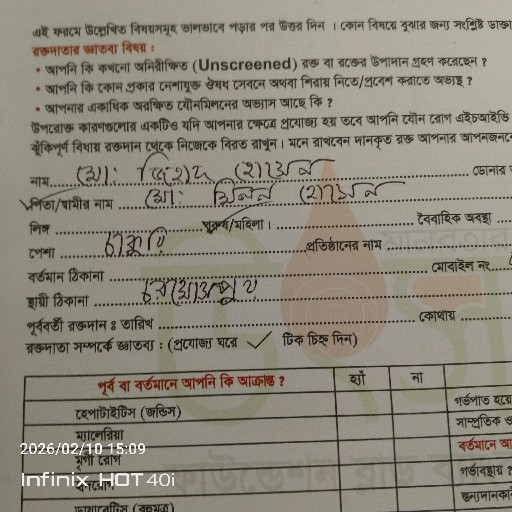 এই ফরমে উল্লেখিত বিষয়সমূহ ভালভাবে পড়ার পর উত্তর দিন । কোন বিষয়ে বুঝার জন্য সংশ্লিষ্ট ডাক্তা
রক্তদাতার জ্ঞাতব্য বিষয় :
• আপনি কি কখনো অনিরীক্ষিত (Unscreened) রক্ত বা রক্তের উপাদান গ্রহণ করেছেন ?
• আপনি কি কোন প্রকার নেশাযুক্ত ঔষধ সেবনে অথবা শিরায় নিতে/প্রবেশ করাতে অভ্যস্থ ?
• আপনার একাধিক অরক্ষিত যৌনমিলনের অভ্যাস আছে কি ?
উপরোক্ত কারণগুলোর একটিও যদি আপনার ক্ষেত্রে প্রযোজ্য হয় তবে আপনি যৌন রোগ এইচআইভি
ঝুঁকিপূর্ণ বিধায় রক্তদান থেকে নিজেকে বিরত রাখুন। মনে রাখবেন দানকৃত রক্ত আপনার আপনজনকে
নাম মো: জিহাদ হোসেন ডোনার
পিতা/স্বামীর নাম মো: মিলন হোসেন
লিঙ্গ পুরুষ/মহিলা । বৈবাহিক অবস্থা
পেশা চাকুরি প্রতিষ্ঠানের নাম
বর্তমান ঠিকানা মোবাইল নং
স্থায়ী ঠিকানা
পূর্ববর্তী রক্তদান ঃ তারিখ কোথায়
রক্তদাতা সম্পর্কে জ্ঞাতব্য : (প্রযোজ্য ঘরে ✓ টিক চিহ্ন দিন)
পূর্ব বা বর্তমানে আপনি কি আক্রান্ত ? হ্যাঁ না
হেপাটাইটিস (জন্ডিস) গর্ভপাত হয়ে
ম্যালেরিয়া সাম্প্রতিক
2026/02/10 15:09 বর্তমানে
মৃগী রোগ গর্ভাবস্থায় ?
Infinix HOT 40i
ডায়াবেটিস (বহুমূত্র)